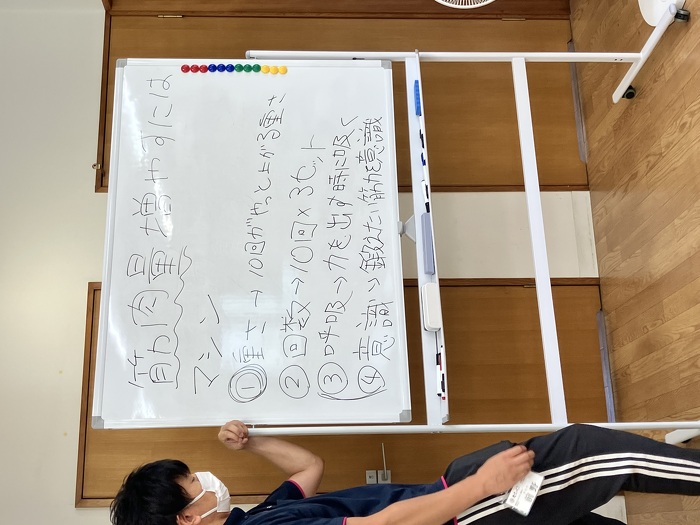 筋肉量増やすには
マシン
① 重さ → 10回がやっと上がる重さ
② 回数 → 10回×3セット
③ 呼吸 → 力を出す時に吸く
④ 意識 → 鍛えたい筋を意識